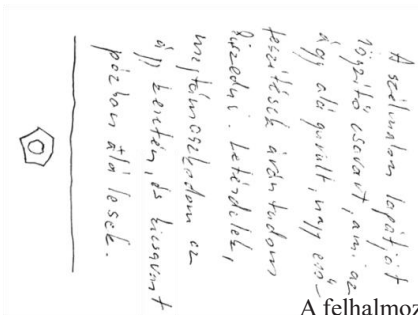 A szélmalom lapátját
rögzítő csavart, ami az
ágy alá gurult, nagy erő-
feszítések árán tudom
kiszedni. Letérdelek,
megtámaszkodom az
ágy keretén, és kicsavart
pózban alá lesek.
A felhalmoz